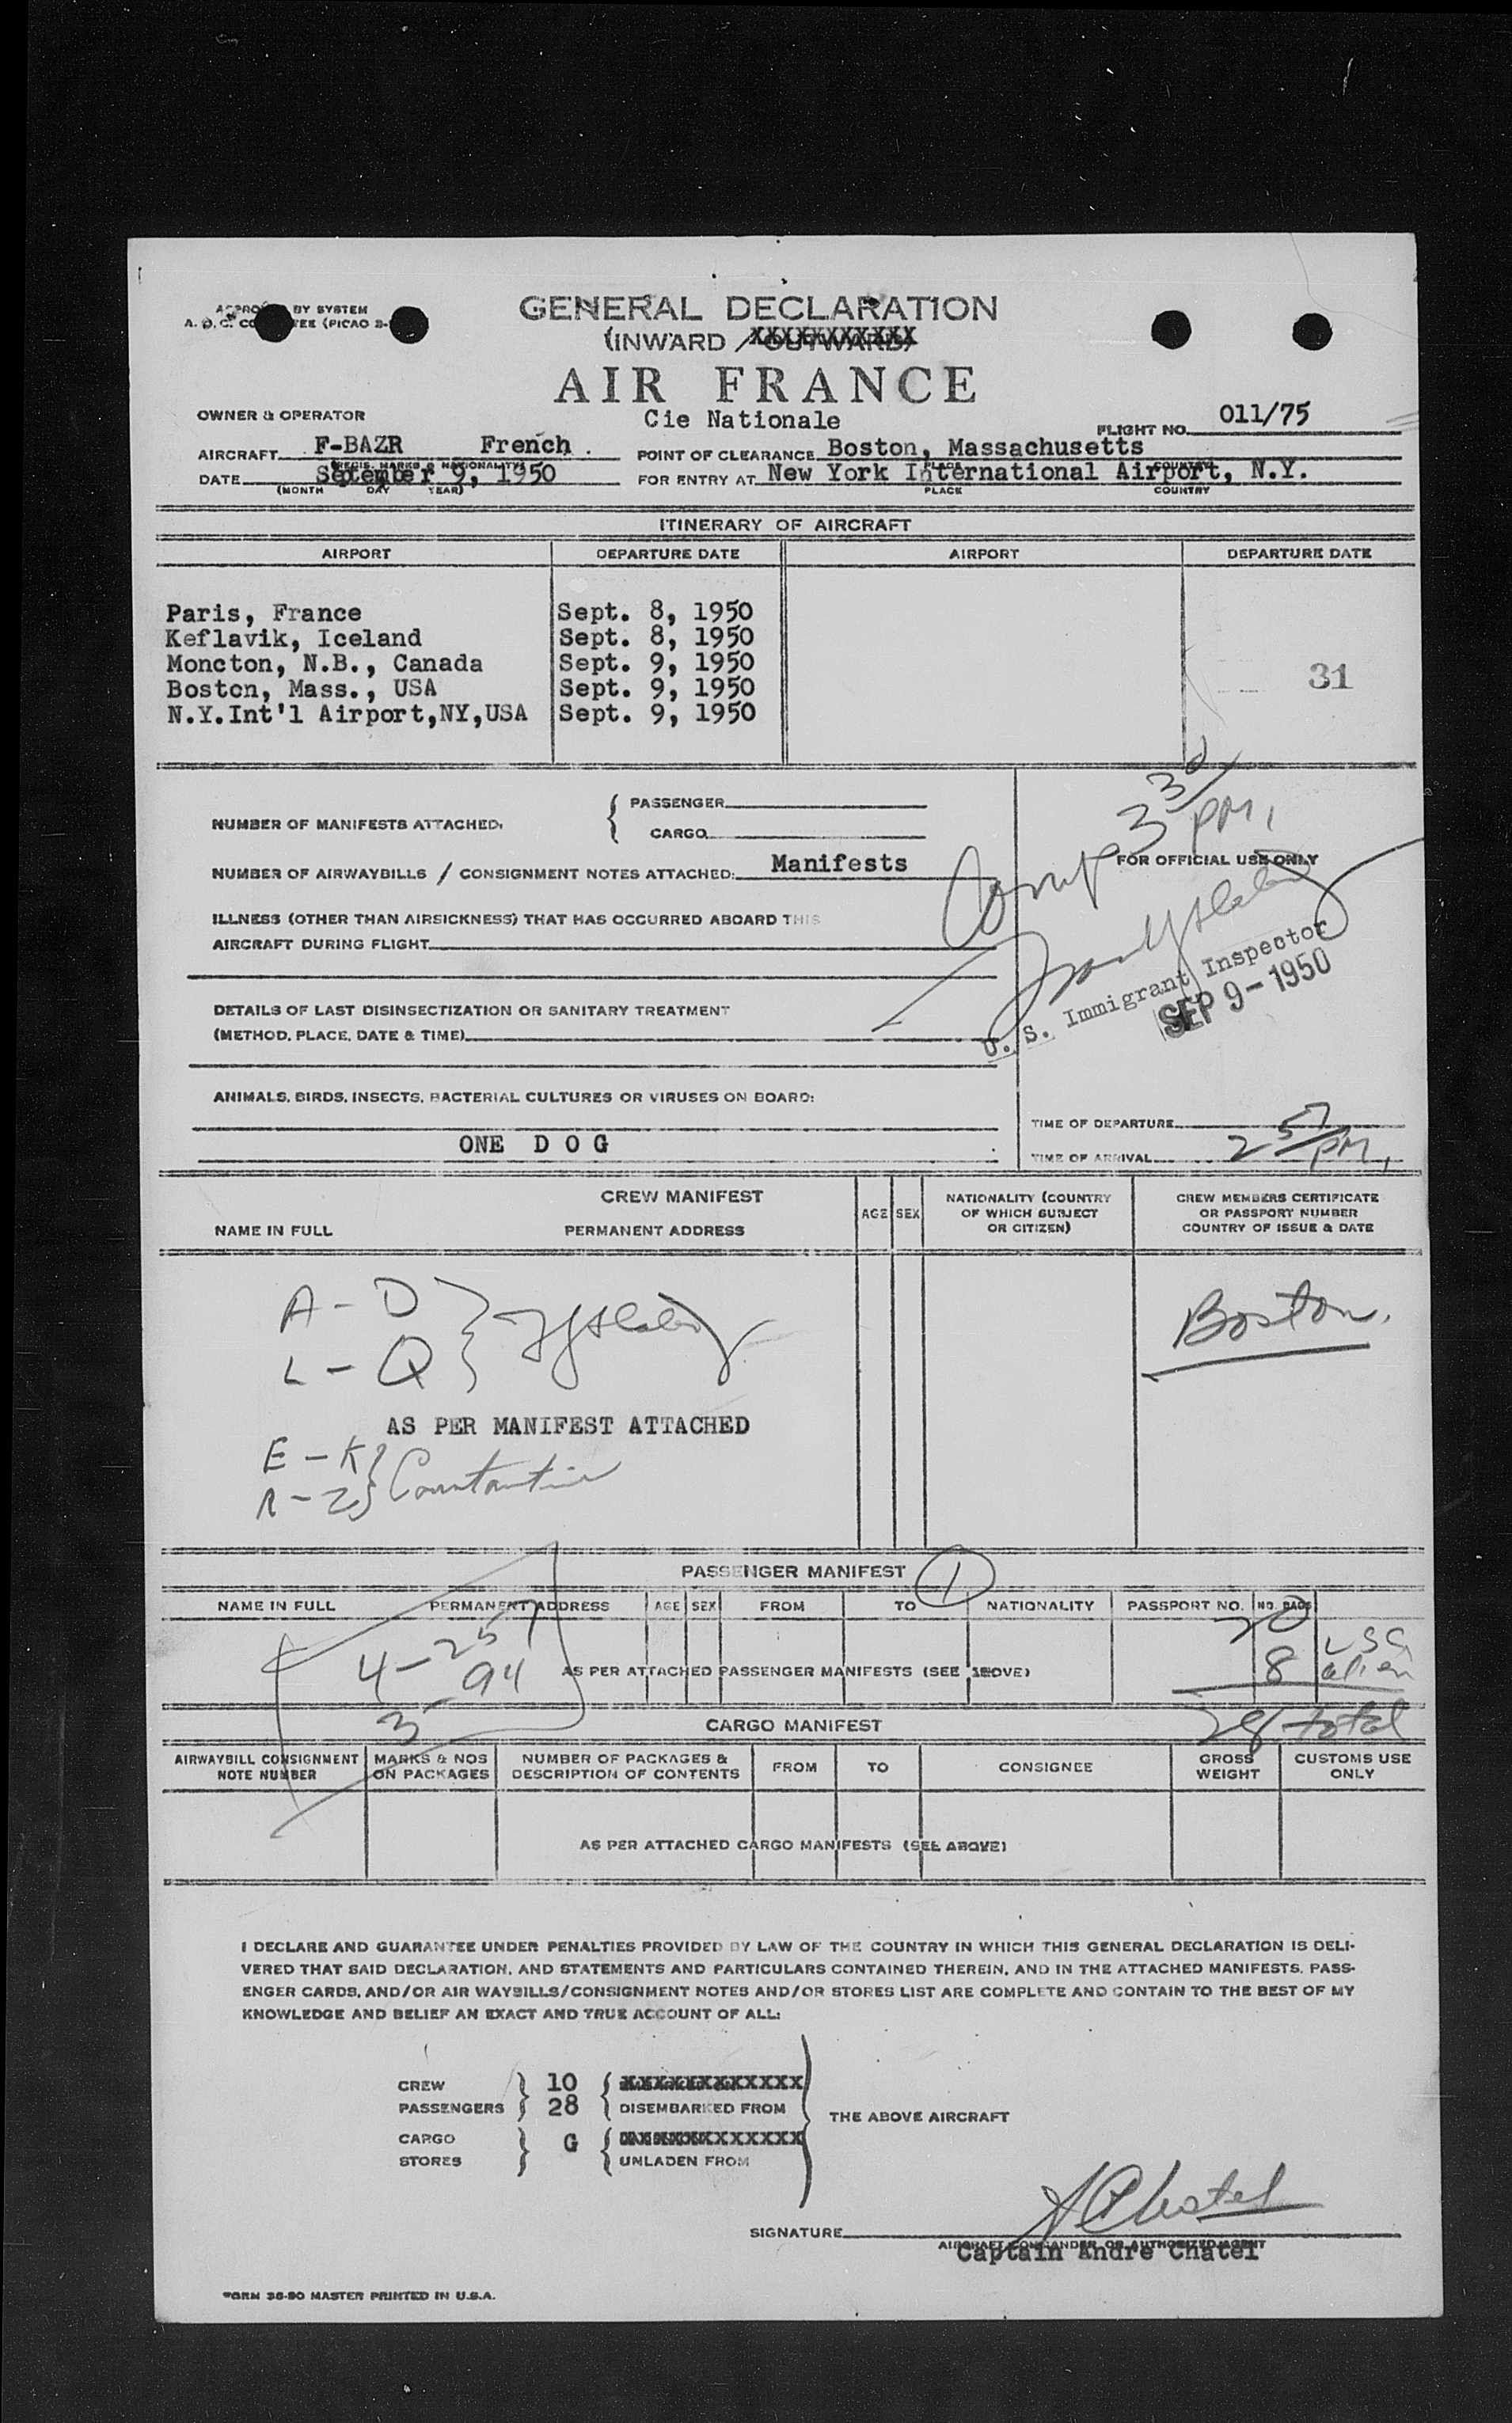 GENERAL DECLARATION
(INWARD / OUTWARD)
AIR FRANCE
OWNER & OPERATOR Cie Nationale
FLIGHT NO. 011/75
AIRCRAFT F-BAZR French
(REGIS. MARKS & NATIONALITY)
POINT OF CLEARANCE Boston, Massachusetts
PLACE COUNTRY
DATE September 9, 1950
(MONTH DAY YEAR)
FOR ENTRY AT New York International Airport, N.Y.
PLACE COUNTRY
ITINERARY OF AIRCRAFT
AIRPORT DEPARTURE DATE AIRPORT DEPARTURE DATE
Paris, France Sept. 8, 1950
Keflavik, Iceland Sept. 8, 1950
Moncton, N.B., Canada Sept. 9, 1950
Boston, Mass., USA Sept. 9, 1950
N.Y.Int'l Airport,NY,USA Sept. 9, 1950
31
NUMBER OF MANIFESTS ATTACHED:
PASSENGER
CARGO
NUMBER OF AIRWAYBILLS / CONSIGNMENT NOTES ATTACHED: Manifests
ILLNESS (OTHER THAN AIRSICKNESS) THAT HAS OCCURRED ABOARD THIS
AIRCRAFT DURING FLIGHT
DETAILS OF LAST DISINSECTIZATION OR SANITARY TREATMENT
(METHOD, PLACE, DATE & TIME)
ANIMALS, BIRDS, INSECTS, BACTERIAL CULTURES OR VIRUSES ON BOARD:
ONE D O G
Comp 3 30 PM,
FOR OFFICIAL USE ONLY
U. S. Immigrant Inspector
SEP 9 - 1950
TIME OF DEPARTURE
TIME OF ARRIVAL 2 57 PM,
CREW MANIFEST
NAME IN FULL PERMANENT ADDRESS
AGE SEX
NATIONALITY (COUNTRY
OF WHICH SUBJECT
OR CITIZEN)
CREW MEMBERS CERTIFICATE
OR PASSPORT NUMBER
COUNTRY OF ISSUE & DATE
A - D
L - Q
Boston.
AS PER MANIFEST ATTACHED
E - K
R - Z Constantine
PASSENGER MANIFEST 1
NAME IN FULL PERMANENT ADDRESS AGE SEX FROM TO NATIONALITY PASSPORT NO. NO. BAGS
20 USC
4 - 257
94
3
AS PER ATTACHED PASSENGER MANIFESTS (SEE ABOVE)
8 alien
28 total
CARGO MANIFEST
AIRWAYBILL CONSIGNMENT
NOTE NUMBER
MARKS & NOS
ON PACKAGES
NUMBER OF PACKAGES &
DESCRIPTION OF CONTENTS
FROM TO CONSIGNEE
GROSS
WEIGHT
CUSTOMS USE
ONLY
AS PER ATTACHED CARGO MANIFESTS (SEE ABOVE)
I DECLARE AND GUARANTEE UNDER PENALTIES PROVIDED BY LAW OF THE COUNTRY IN WHICH THIS GENERAL DECLARATION IS DELI-
VERED THAT SAID DECLARATION, AND STATEMENTS AND PARTICULARS CONTAINED THEREIN, AND IN THE ATTACHED MANIFESTS, PASS-
ENGER CARDS, AND/OR AIR WAYBILLS/CONSIGNMENT NOTES AND/OR STORES LIST ARE COMPLETE AND CONTAIN TO THE BEST OF MY
KNOWLEDGE AND BELIEF AN EXACT AND TRUE ACCOUNT OF ALL:
CREW 10 XXXXXXXXXXXX
PASSENGERS 28 DISEMBARKED FROM
THE ABOVE AIRCRAFT
CARGO G XXXXXXXXXXXX
STORES UNLADEN FROM
SIGNATURE A Chatel
AIRCRAFT COMMANDER OR AUTHORIZED AGENT
Captain Andre Chatel
FORM 36-50 MASTER PRINTED IN U.S.A.